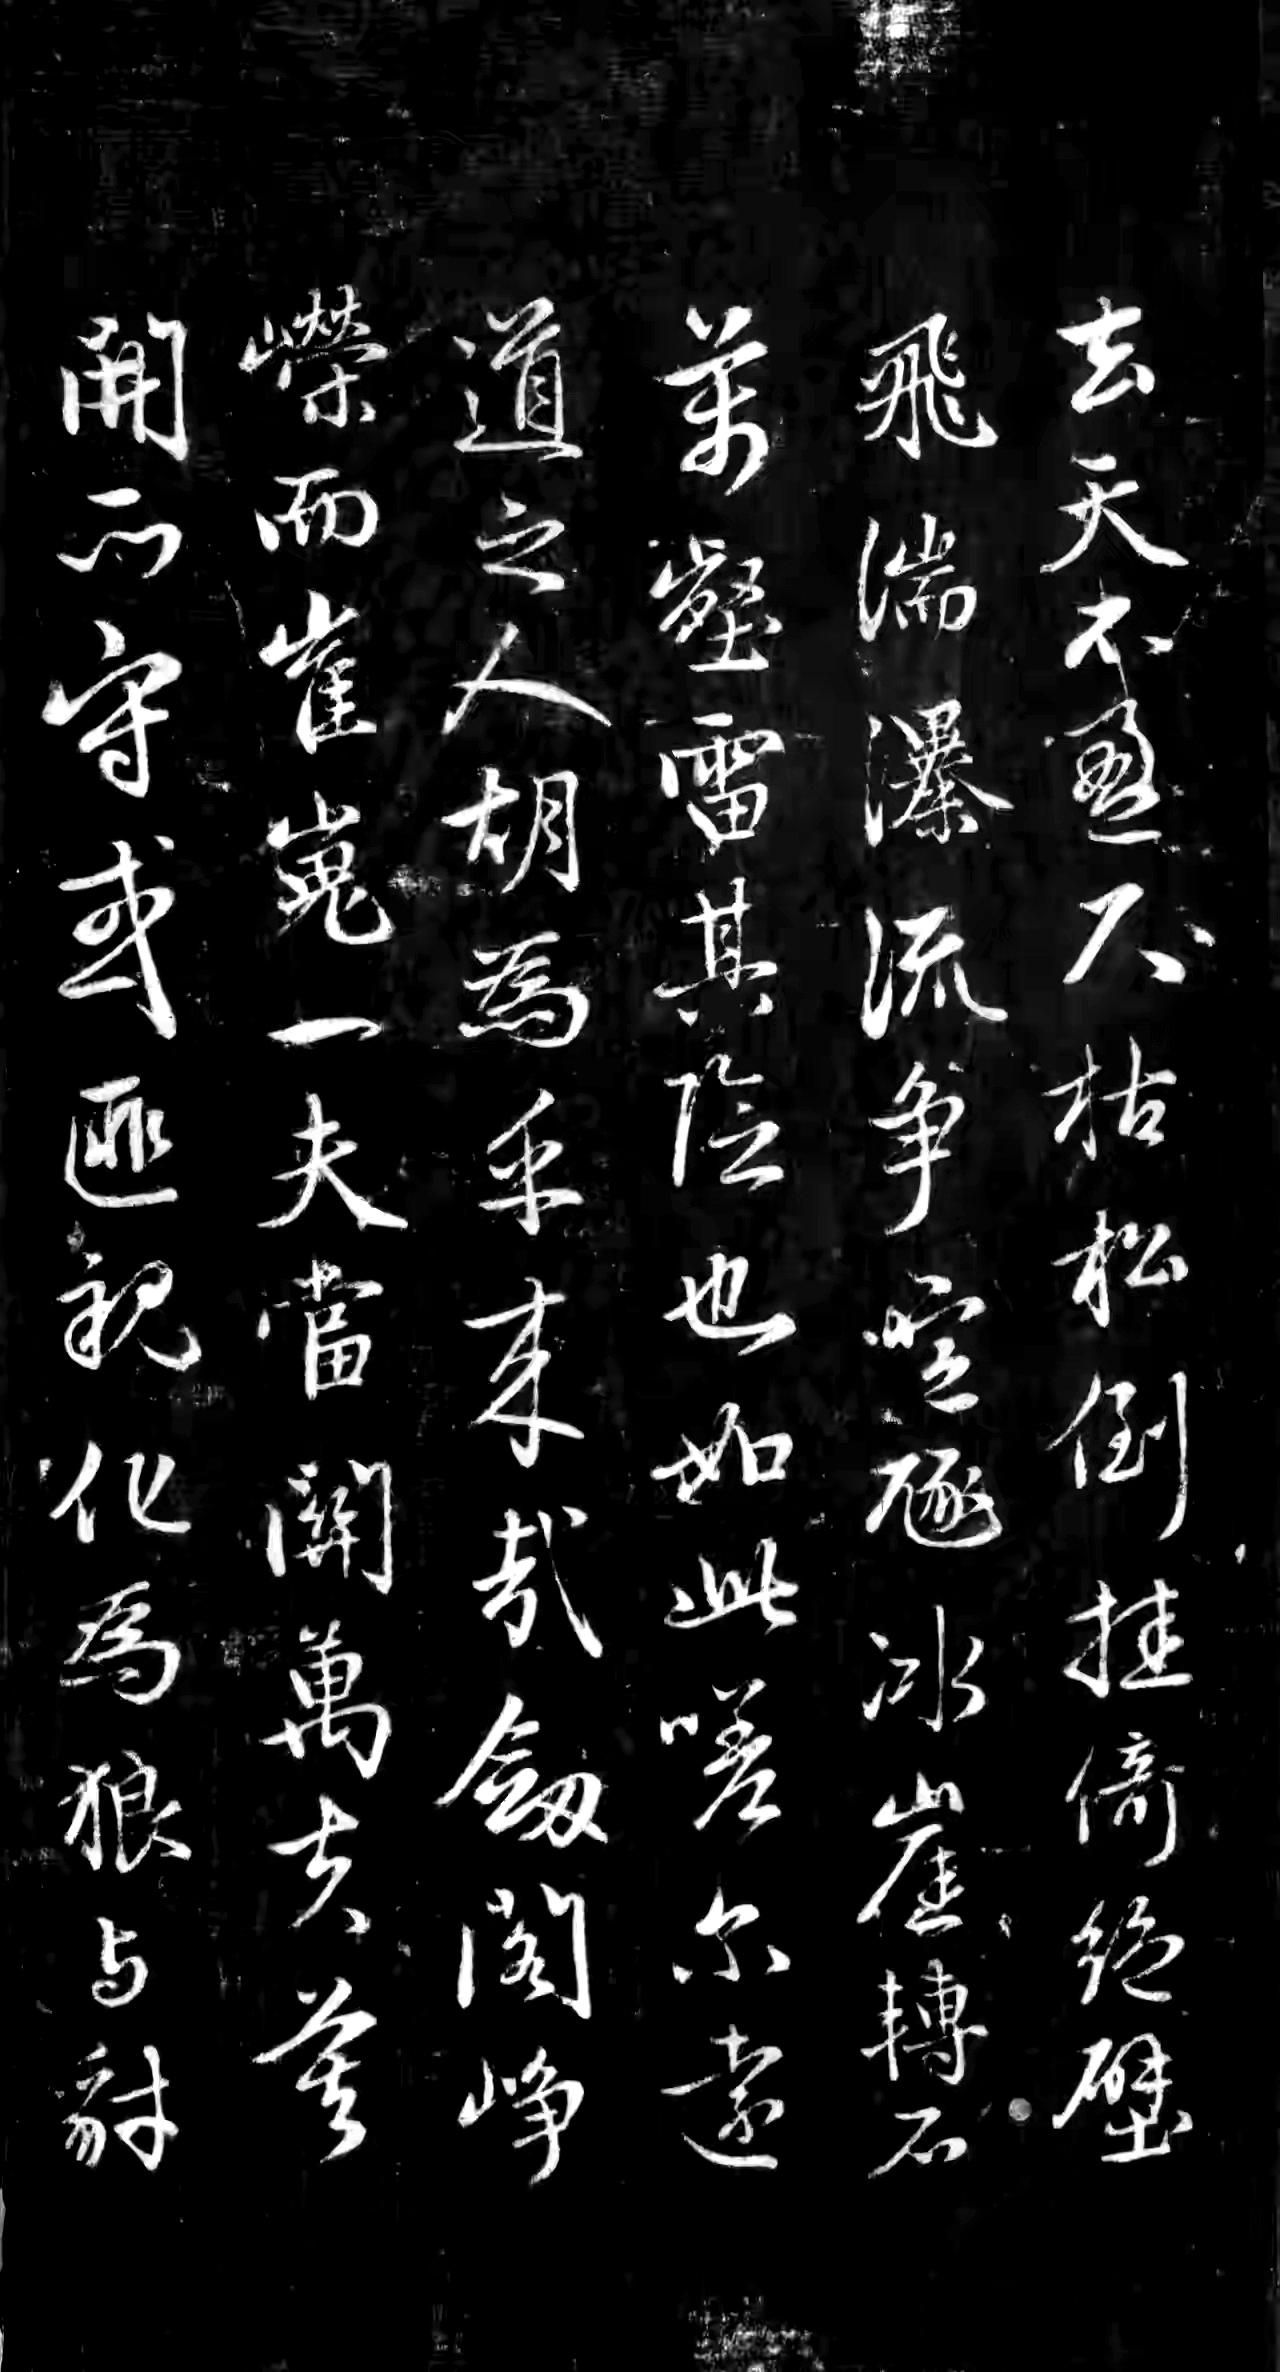 去天不盈尺枯松倒挂倚絶壁
飛湍瀑流争喧豗冰崖轉石
萬壑雷其險也如此嗟尔遠
道之人胡為乎来哉劔閣峥
嶸而崔嵬一夫當關萬夫莫
開所守或匪親化為狼与豺